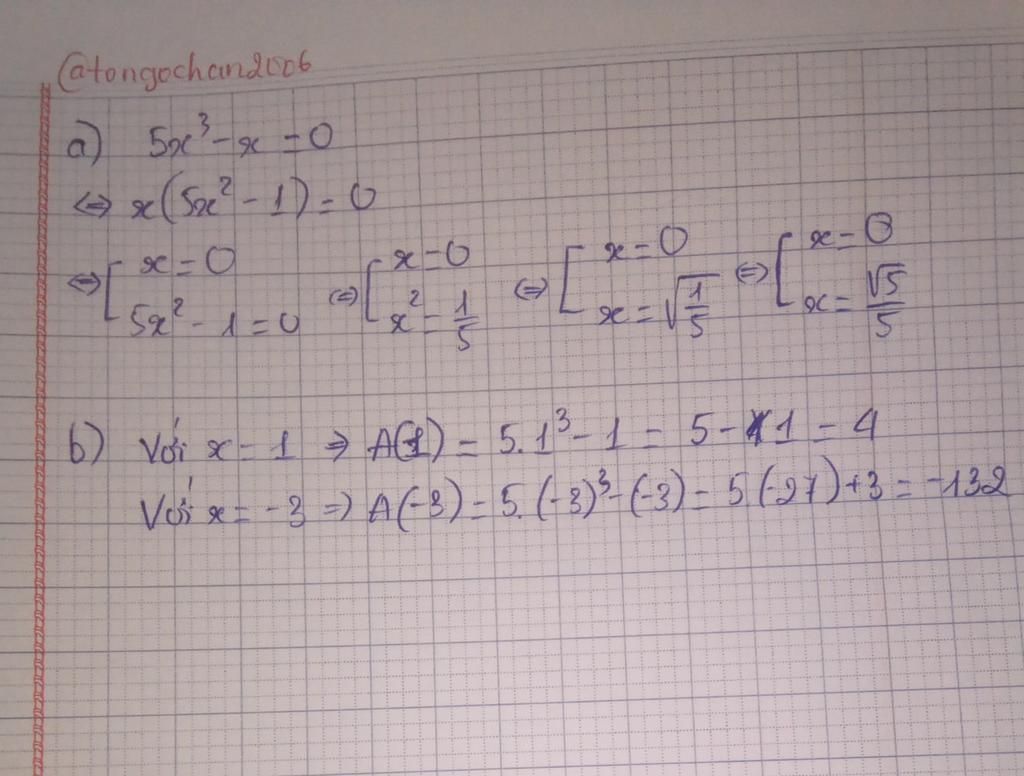 @tongochan2006
a) 5x³ - x = 0
⇔ x(5x² - 1) = 0
⇔ [ x = 0 ; 5x² - 1 = 0 ⇔ [ x = 0 ; x² = 1/5 ⇔ [ x = 0 ; x = √(1/5) ⇔ [ x = 0 ; x = √5/5
b) Với x = 1 ⇒ A(1) = 5.1³ - 1 = 5 - 1 = 4
Với x = -3 ⇒ A(-3) = 5.(-3)³ - (-3) = 5(-27) + 3 = -132